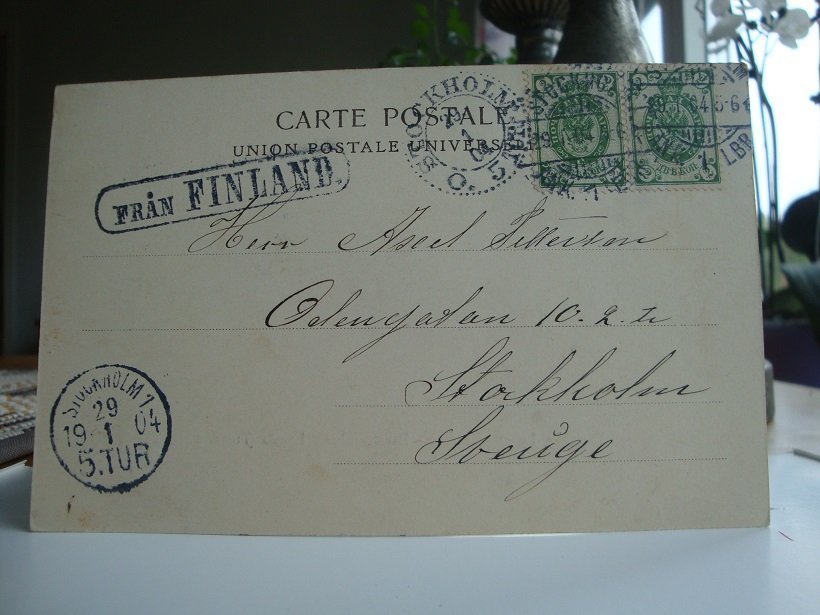 CARTE POSTALE
UNION POSTALE UNIVERSELLE
FRÅN FINLAND
STOCKHOLM
Herr Axel Pettersson
Odengatan 10. 2. tr
Stockholm
Sverige
STOCKHOLM 7
29
19 1 04
5.TUR